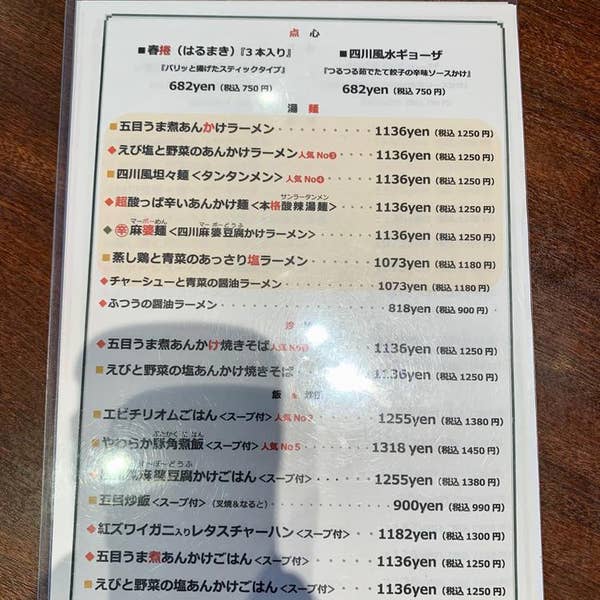 点 心
■春捲（はるまき）『3本入り』
『パリッと揚げたスティックタイプ』
682yen（税込 750円）
■四川風水ギョーザ
『つるつる茹でたて餃子の辛味ソースかけ』
682yen（税込 750円）
湯 麺
■五目うま煮あんかけラーメン 1136yen（税込 1250円）
◆えび塩と野菜のあんかけラーメン 人気No❸ 1136yen（税込 1250円）
■四川風坦々麺＜タンタンメン＞人気No❹ 1136yen（税込 1250円）
サンラータンメン
◆超酸っぱ辛いあんかけ麺＜本格酸辣湯麺＞ 1136yen（税込 1250円）
マーボーめん マーボーどうふ
◆㊛麻婆麺＜四川麻婆豆腐かけラーメン＞ 1136yen（税込 1250円）
■蒸し鶏と青菜のあっさり塩ラーメン 1073yen（税込 1180円）
◆チャーシューと青菜の醤油ラーメン 1073yen（税込 1180円）
◆ふつうの醤油ラーメン 818yen（税込 900円）
◆五目うま煮あんかけ焼きそば 人気No 1136yen（税込 1250円）
■えびと野菜の塩あんかけ焼きそば 1136yen（税込 1250円）
飯
■エビチリオムごはん＜スープ付＞人気No 1255yen（税込 1380円）
■やわらか豚角煮飯＜スープ付＞人気No5 1318yen（税込 1450円）
麻婆豆腐かけごはん＜スープ付＞ 1255yen（税込 1380円）
■五目炒飯＜スープ付＞（叉焼&なると） 900yen（税込 990円）
◆紅ズワイガニ入りレタスチャーハン＜スープ付＞ 1182yen（税込 1300円）
◆五目うま煮あんかけごはん＜スープ付＞ 1136yen（税込 1250円）
■えびと野菜の塩あんかけごはん＜スープ付＞ 1136yen（税込 1250円）